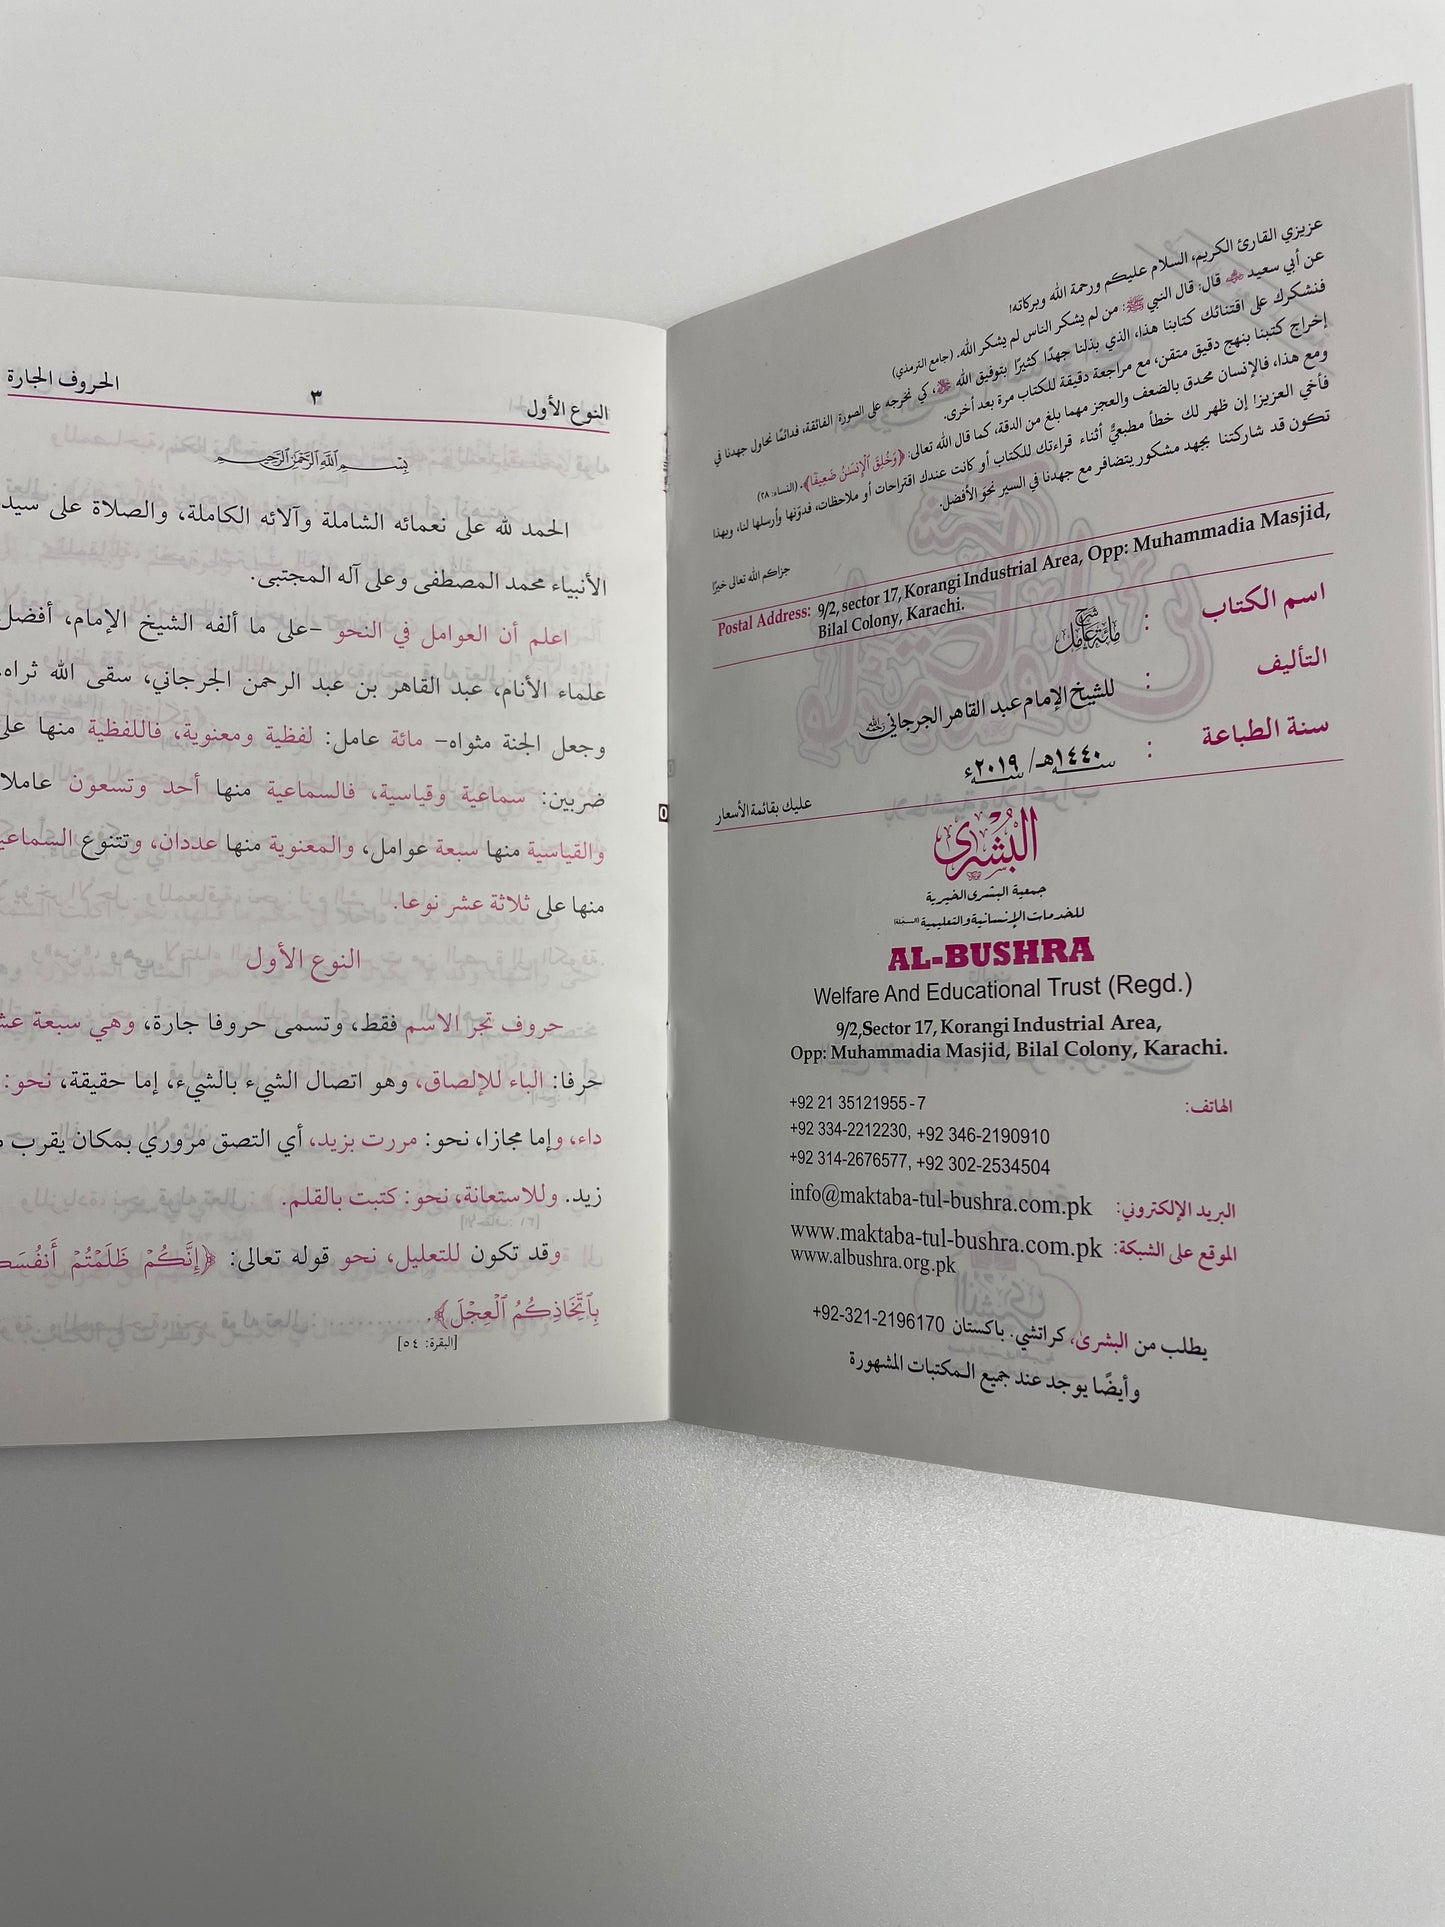 عزيزي القارئ الكريم، السلام عليكم ورحمة الله وبركاته!
عن أبي سعيد ﷺ قال: قال النبي ﷺ: من لم يشكر الناس لم يشكر الله. (جامع الترمذي)
فنشكرك على اقتنائك كتابنا هذا، الذي بذلنا جهدًا كثيرًا بتوفيق الله ﷻ، كي نخرجه على الصورة الفائقة، فدائمًا نحاول جهدنا في
إخراج كتبنا بنهج دقيق متقن، مع مراجعة دقيقة للكتاب مرة بعد أخرى.
ومع هذا، فالإنسان محدق بالضعف والعجز مهما بلغ من الدقة، كما قال الله تعالى: ﴿وَخُلِقَ ٱلْإِنسَٰنُ ضَعِيفًا﴾. (النساء: ٢٨)
فأخي العزيز! إن ظهر لك خطأ مطبعيٌّ أثناء قراءتك للكتاب أو كانت عندك اقتراحات أو ملاحظات، فدوّنها وأرسلها لنا، وبهذا
تكون قد شاركتنا بجهد مشكور يتضافر مع جهدنا في السير نحوَ الأفضل.
جزاكم الله تعالى خيرًا
Postal Address: 9/2, sector 17, Korangi Industrial Area, Opp: Muhammadia Masjid,
Bilal Colony, Karachi.
اسم الكتاب : شرح مائة عامل
التأليف : للشيخ الإمام عبد القاهر الجرجاني رحمه الله
سنة الطباعة : ١٤٤٠هـ/ ٢٠١٩ء
عليك بقائمة الأسعار
البشرى
جمعية البشرى الخيرية
للخدمات الإنسانية والتعليمية (المسجلة)
AL-BUSHRA
Welfare And Educational Trust (Regd.)
9/2,Sector 17, Korangi Industrial Area,
Opp: Muhammadia Masjid, Bilal Colony, Karachi.
الهاتف: +92 21 35121955-7
+92 334-2212230, +92 346-2190910
+92 314-2676577, +92 302-2534504
البريد الإلكتروني: info@maktaba-tul-bushra.com.pk
الموقع على الشبكة: www.maktaba-tul-bushra.com.pk
www.albushra.org.pk
يطلب من البشرى، كراتشي. باكستان +92-321-2196170
وأيضًا يوجد عند جميع المكتبات المشهورة
النوع الأول ٣ الحروف الجارة
بسم الله الرحمن الرحيم
الحمد لله على نعمائه الشاملة وآلائه الكاملة، والصلاة على سيد
الأنبياء محمد المصطفى وعلى آله المجتبى.
اعلم أن العوامل في النحو –على ما ألفه الشيخ الإمام، أفضل
علماء الأنام، عبد القاهر بن عبد الرحمن الجرجاني، سقى الله ثراه،
وجعل الجنة مثواه– مائة عامل: لفظية ومعنوية، فاللفظية منها على
ضربين: سماعية وقياسية، فالسماعية منها أحد وتسعون عاملا
والقياسية منها سبعة عوامل، والمعنوية منها عددان، وتتنوع السماعية
منها على ثلاثة عشر نوعا.
النوع الأول
حروف تجر الاسم فقط، وتسمى حروفا جارة، وهي سبعة عشر
حرفا: الباء للإلصاق، وهو اتصال الشيء بالشيء، إما حقيقة، نحو:
داء، وإما مجازا، نحو: مررت بزيد، أي التصق مروري بمكان يقرب
زيد. وللاستعانة، نحو: كتبت بالقلم.
وقد تكون للتعليل، نحو قوله تعالى: ﴿إِنَّكُمْ ظَلَمْتُمْ أَنفُسَكُ
بِٱتِّخَاذِكُمُ ٱلْعِجْلَ﴾.
[البقرة: ٥٤]